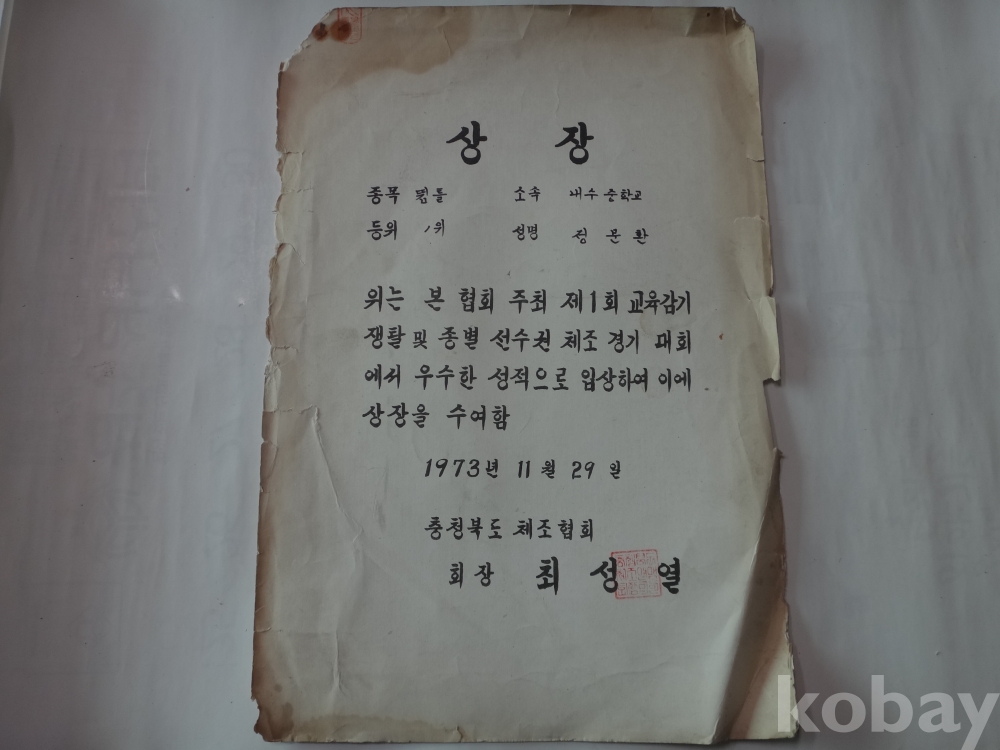 상 장
종목 뜀틀 소속 내수중학교
등위 1위 성명 정문환
위는 본 협회 주최 제1회 교육감기
쟁탈 및 종별 선수권 체조 경기 대회
에서 우수한 성적으로 입상하여 이에
상장을 수여함
1973년 11월 29일
충청북도 체조협회
회장 최성열
kobay